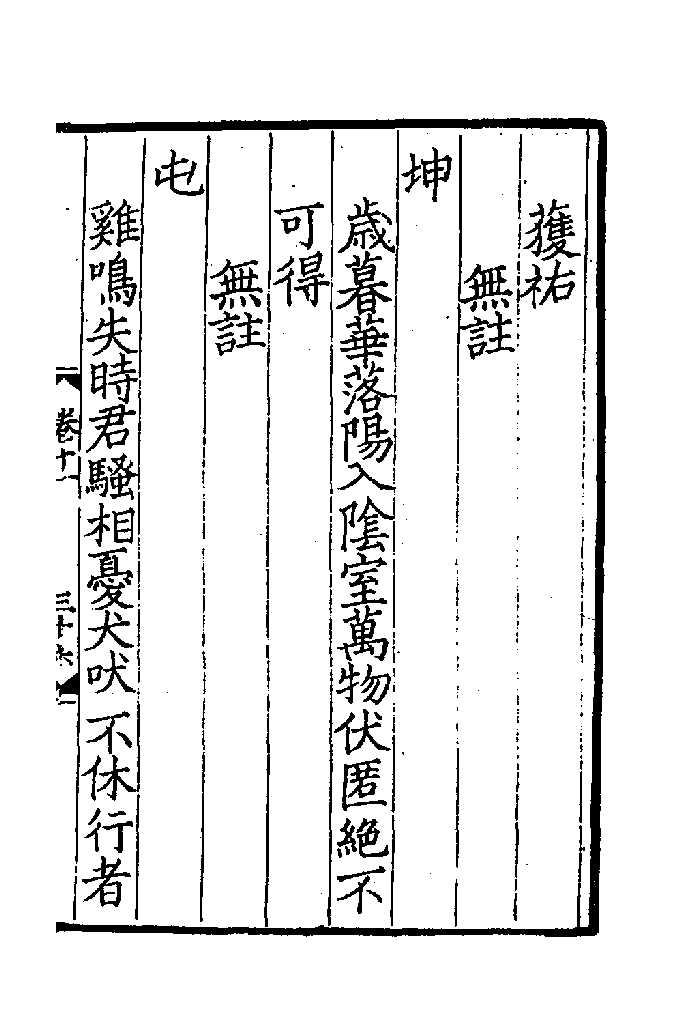 獲祐
無註
坤
歲暮華落陽入陰室萬物伏匿絶不
可得
無註
屯
雞鳴失時君騷相憂犬吠不休行者
卷十一
三十六